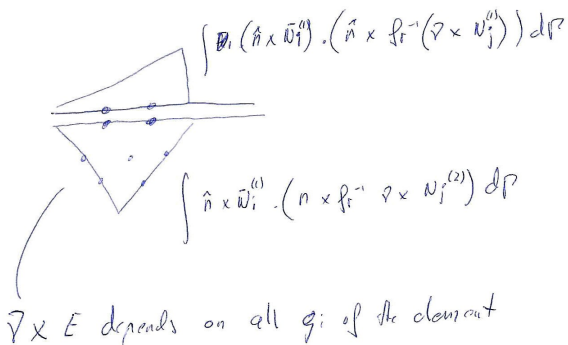 ∫ (n̂ × N̄i⁽¹⁾) · (n̂ × fr⁻¹ (∇ × Nj⁽¹⁾)) dΓ
∫ n̂ × N̄i⁽¹⁾ · (n × fr⁻¹ ∇ × Nj⁽²⁾) dΓ
∇̄ × E depends on all gi of the element